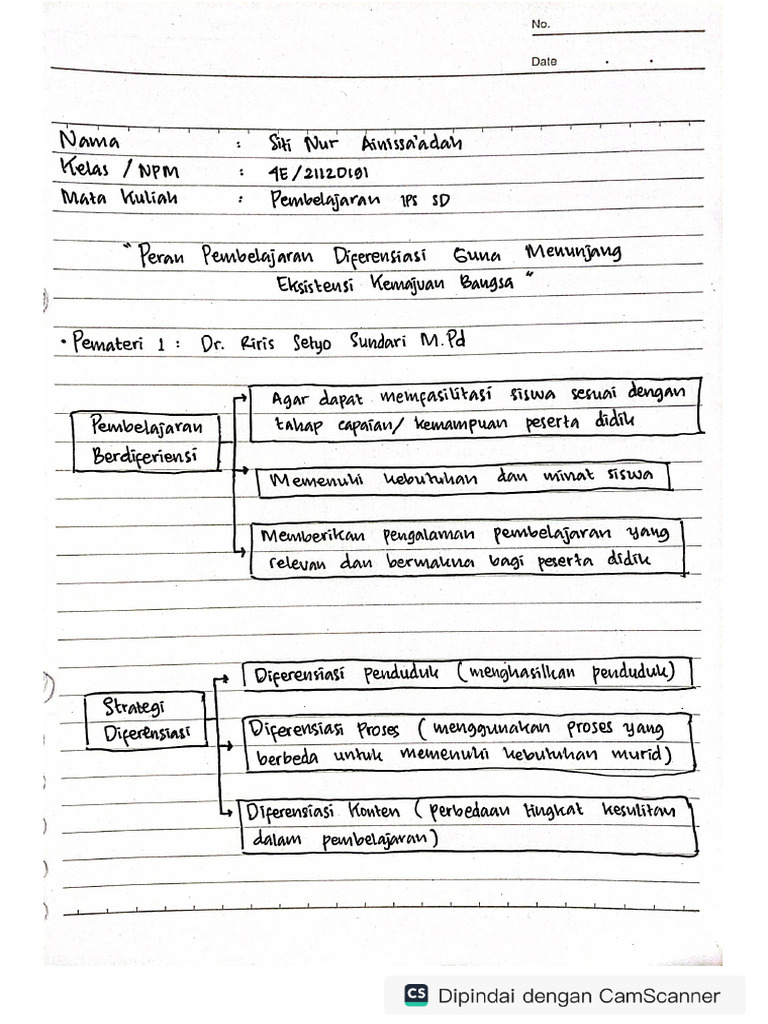 No.
Date
Nama : Siti Nur Ainissa'adah
Kelas / NPM : 4E/21120191
Mata Kuliah : Pembelajaran IPS SD
"Peran Pembelajaran Diferensiasi Guna Menunjang
Eksistensi Kemajuan Bangsa"
• Pemateri 1 : Dr. Riris Setyo Sundari M.Pd
Pembelajaran
Berdiferiensi
Agar dapat memfasilitasi siswa sesuai dengan
tahap capaian/ kemampuan peserta didik
Memenuhi kebutuhan dan minat siswa
Memberikan pengalaman pembelajaran yang
relevan dan bermakna bagi peserta didik
Strategi
Diferensiasi
Diferensiasi penduduk (menghasilkan penduduk)
Diferensiasi Proses (menggunakan proses yang
berbeda untuk memenuhi kebutuhan murid)
Diferensiasi Konten (perbedaan tingkat kesulitan
dalam pembelajaran)
CS Dipindai dengan CamScanner